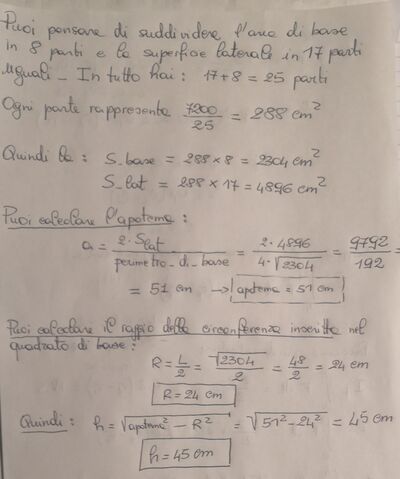 Puoi pensare di suddividere l'area di base
in 8 parti e la superficie laterale in 17 parti
uguali - In tutto hai: 17+8 = 25 parti
Ogni parte rappresenta 7200/25 = 288 cm²
Quindi la: S_base = 288 × 8 = 2304 cm²
S_lat = 288 × 17 = 4896 cm²
Puoi calcolare l'apotema:
a = 2·S_lat / perimetro_di_base = 2·4896 / 4·√2304 = 9792/192 =
= 51 cm → apotema = 51 cm
Puoi calcolare il raggio della circonferenza inscritta nel
quadrato di base:
R = L/2 = √2304/2 = 48/2 = 24 cm
R = 24 cm
Quindi: h = √apotema² - R² = √51² - 24² = 45 cm
h = 45 cm